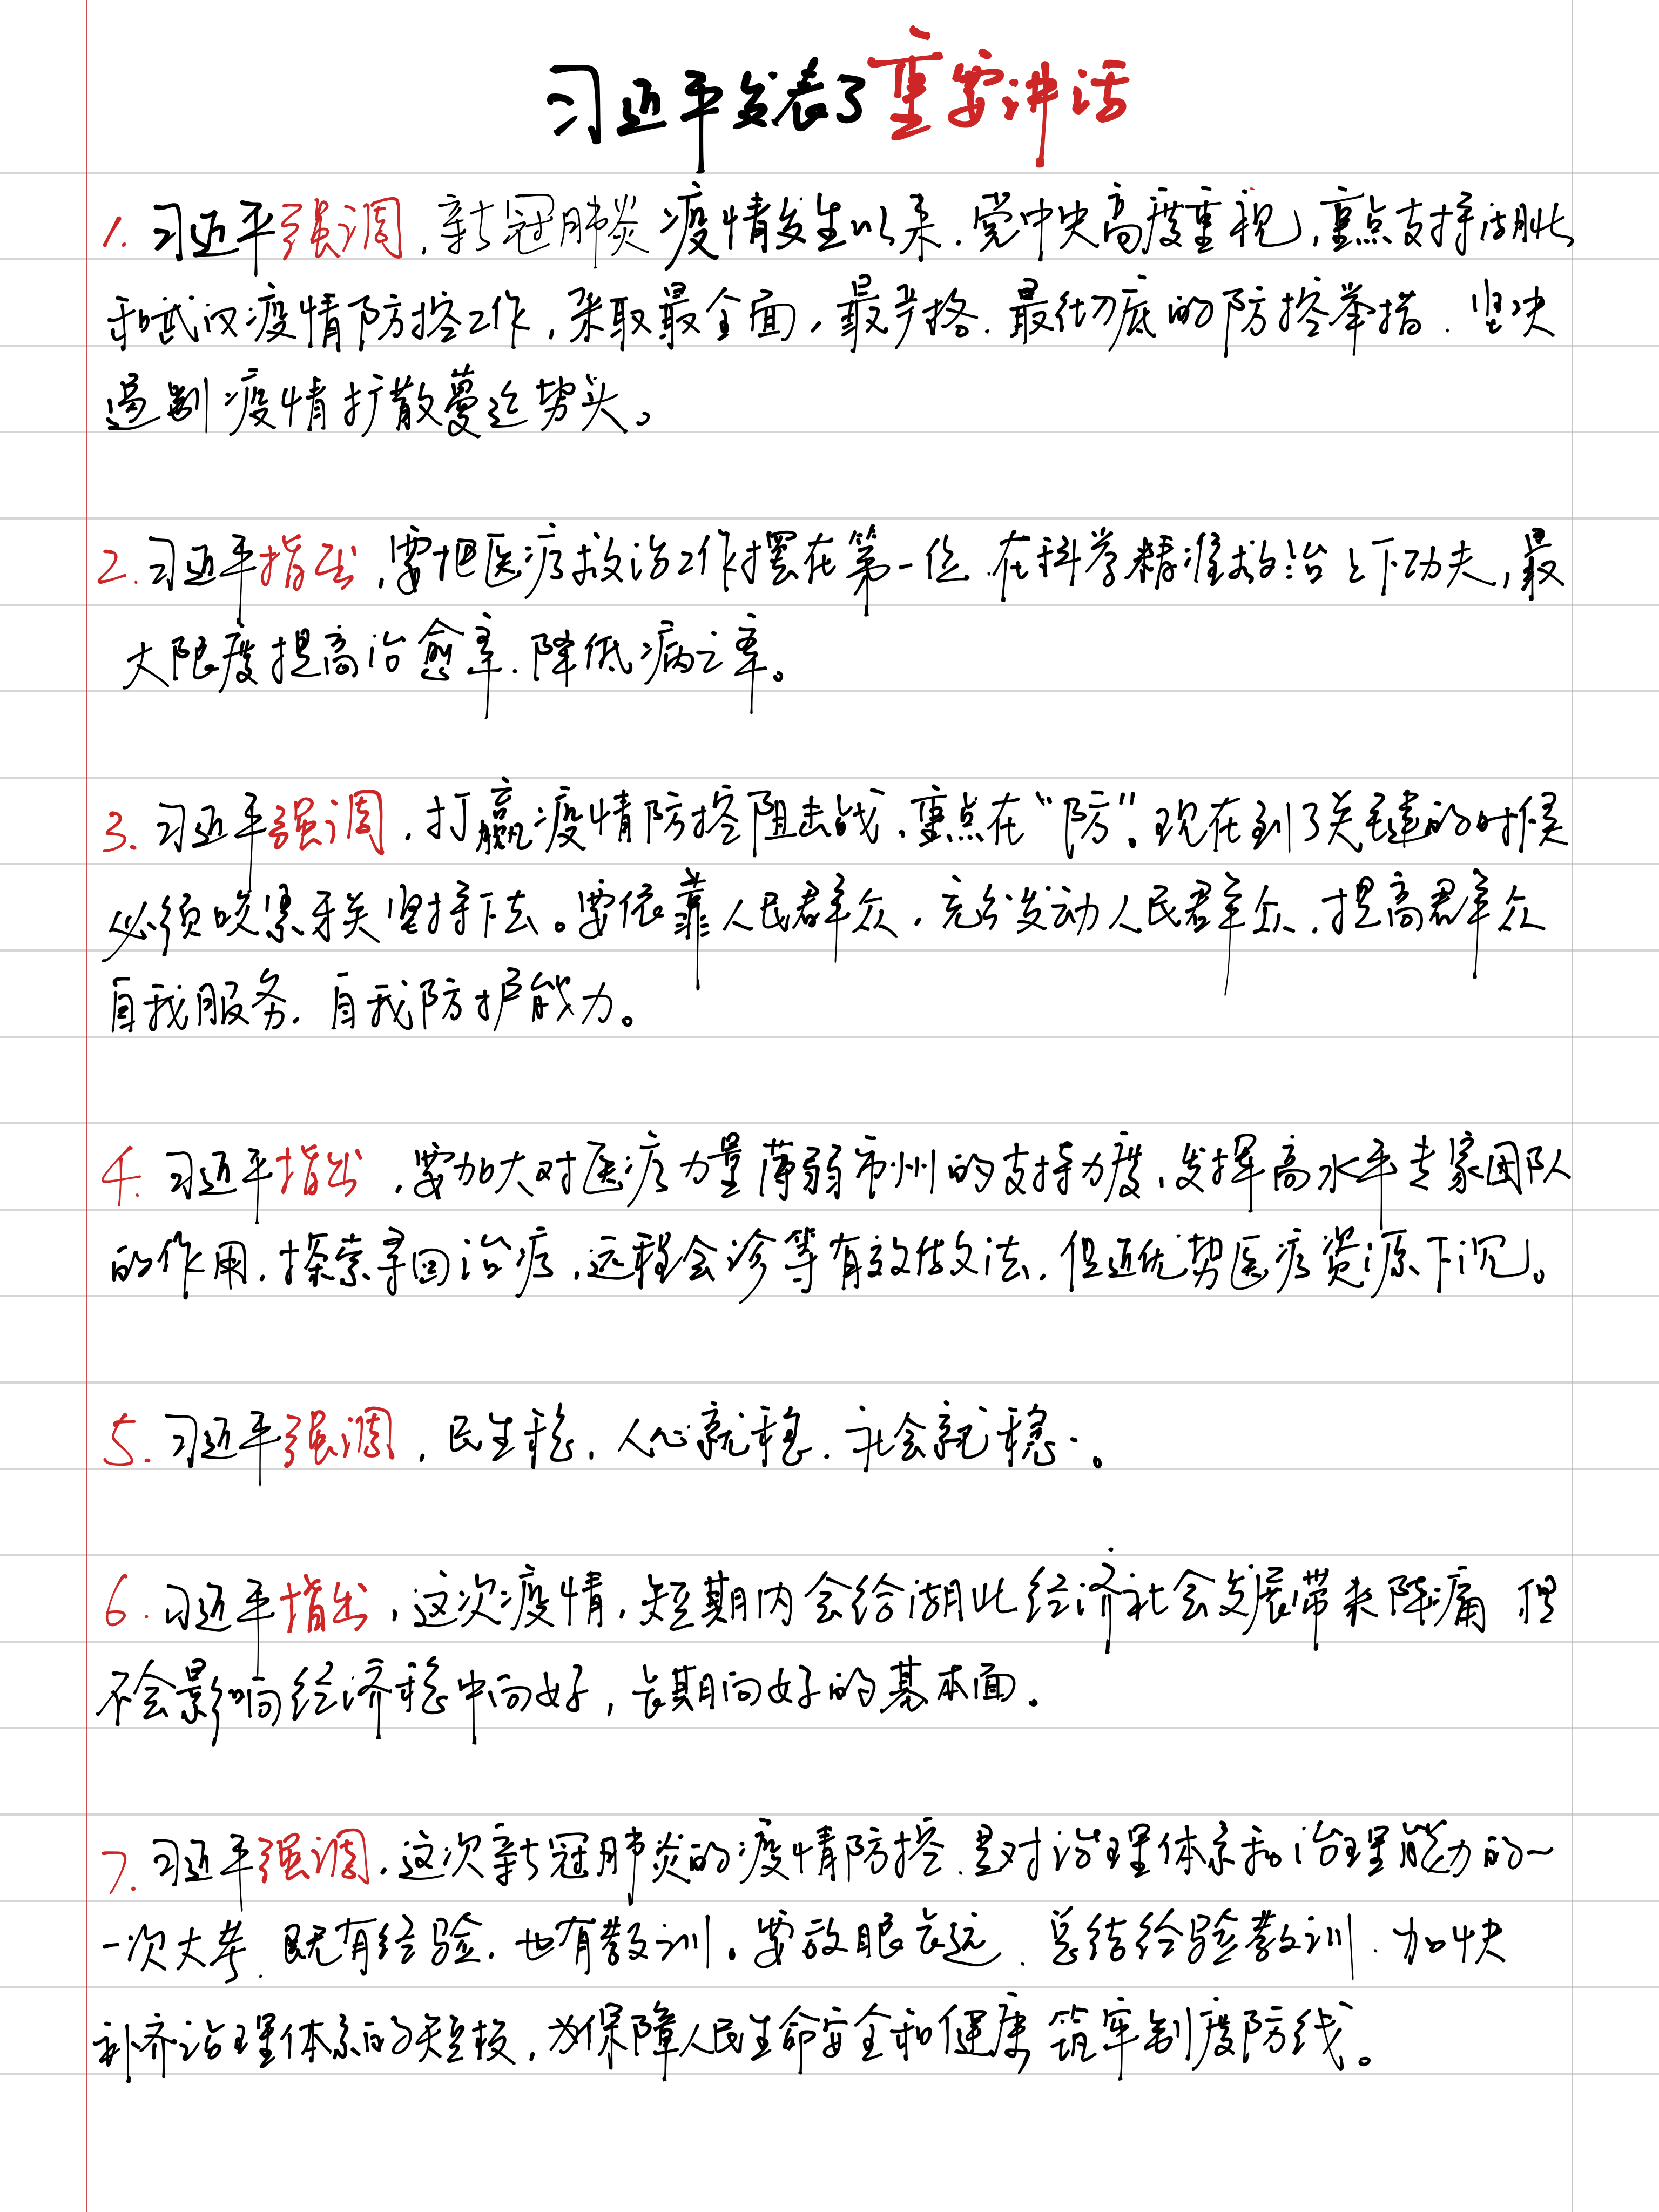 习近平发表了重要讲话
1. 习近平强调,新冠肺炎疫情发生以来.党中央高度重视,重点支持湖北
和武汉疫情防控工作,采取最全面,最严格.最彻底的防控举措.坚决
遏制疫情扩散蔓延势头。
2. 习近平指出,要把医疗救治工作摆在第一位.在科学精准救治上下功夫,最
大限度提高治愈率.降低病亡率。
3. 习近平强调,打赢疫情防控阻击战,重点在“防”.现在到了关键的时候
必须咬紧牙关坚持下去。要依靠人民群众,充分发动人民群众.提高群众
自我服务.自我防护能力。
4. 习近平指出,要加大对医疗力量薄弱市州的支持力度,发挥高水平专家团队
的作用.探索巡回治疗,远程会诊等有效做法.促进优势医疗资源下沉。
5. 习近平强调,民生稳,人心就稳.社会就稳.。
6. 习近平指出,这次疫情,短期内会给湖北经济社会发展带来阵痛 但
不会影响经济稳中向好,长期向好的基本面。
7. 习近平强调,这次新冠肺炎的疫情防控.是对治理体系和治理能力的一
一次大考.既有经验.也有教训。要放眼长远.总结经验教训.加快
补齐治理体系的短板,为保障人民生命安全和健康筑牢制度防线。